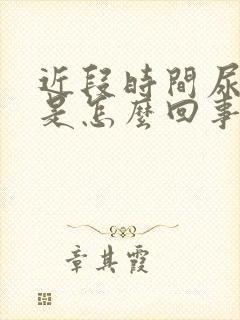 近段時間尿
是怎麼回事
章其霞